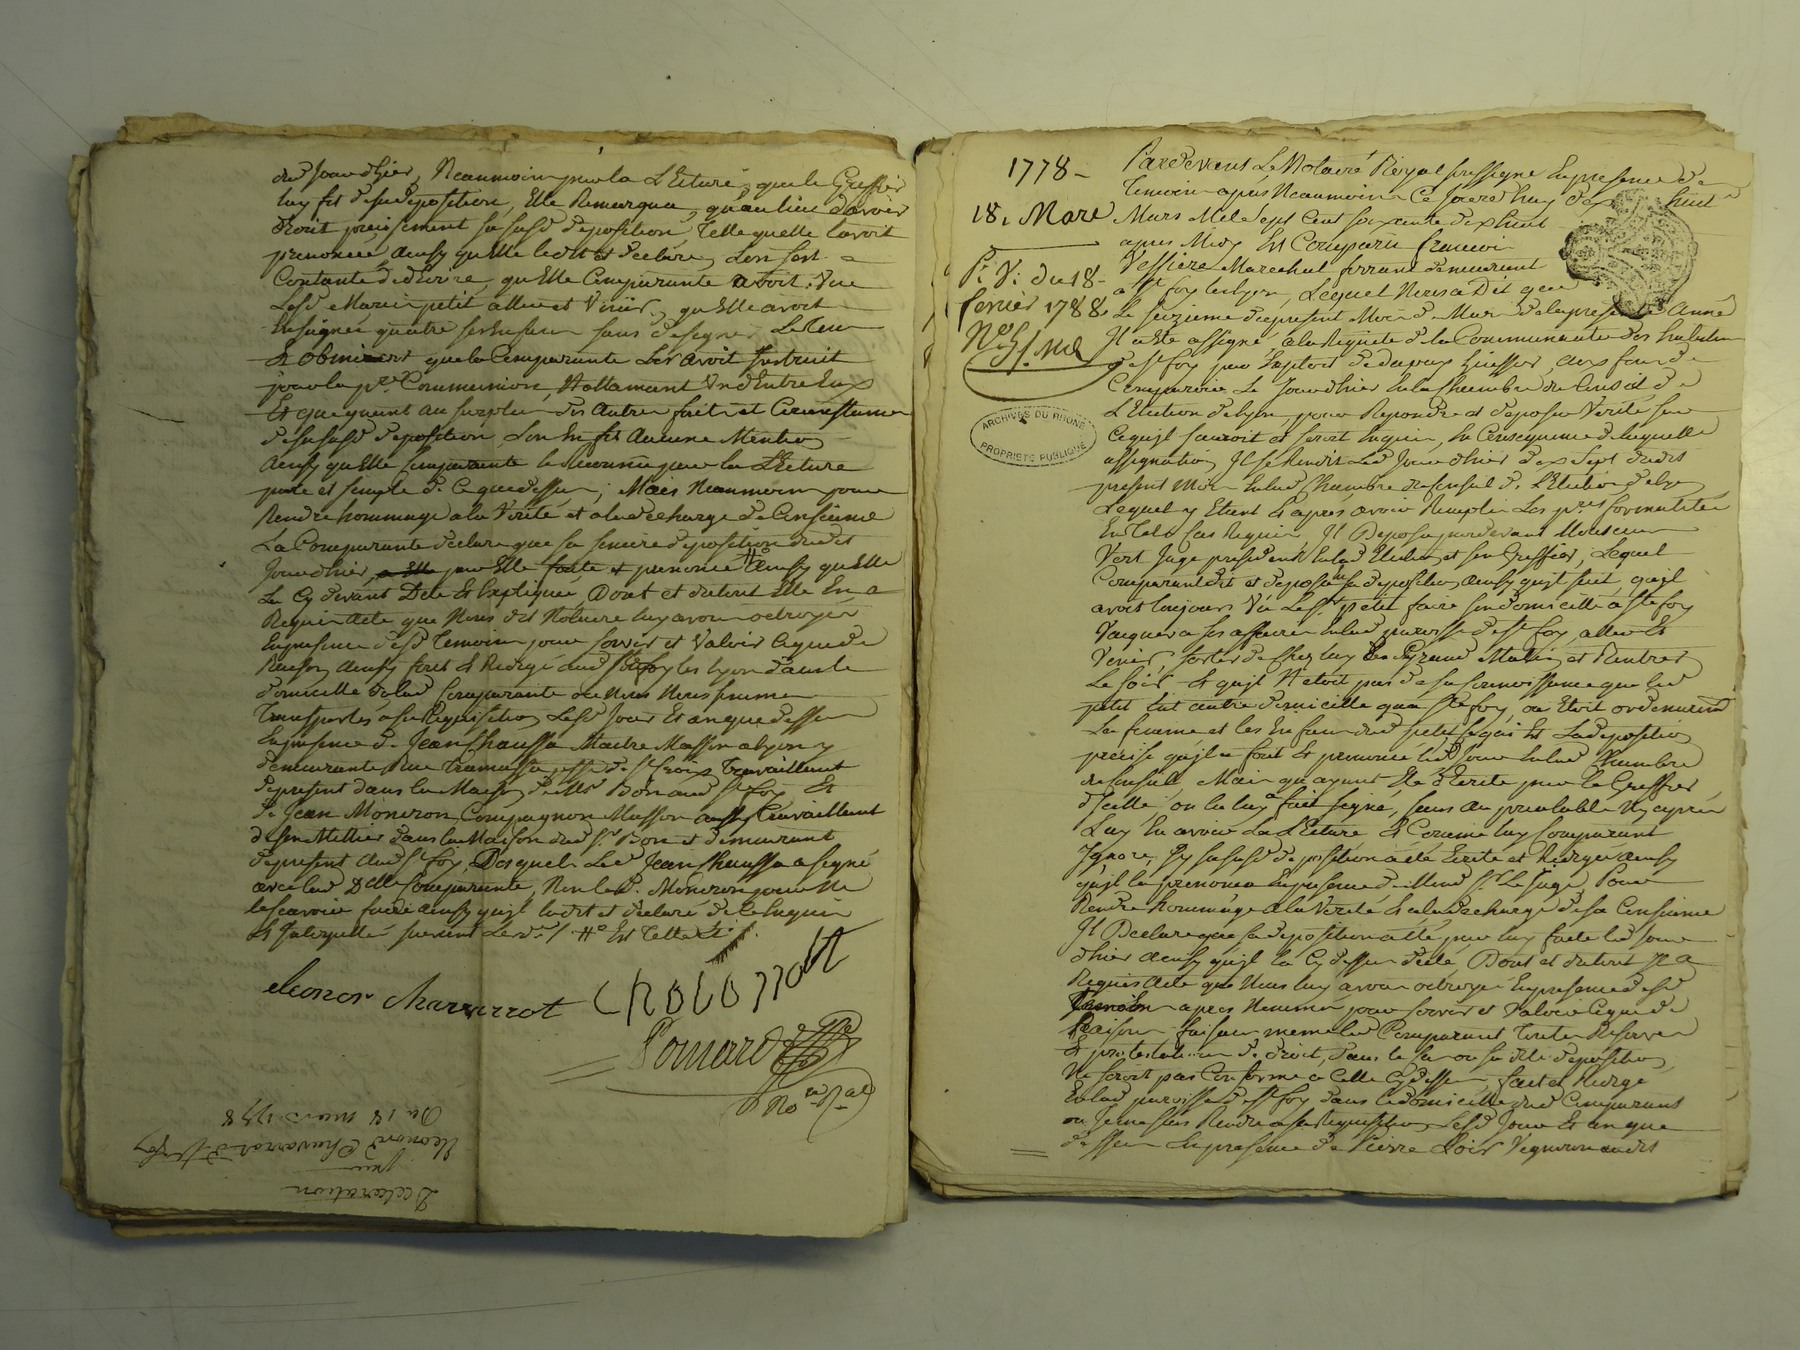 dud Jour d'hier, Neaumoins par la Lecture, que le Greffier
luy fit de sa deposition, Elle Remarqua, qu'au lieu d'avoir
Ecrit precisement sa susd. deposition Telle quelle l'avoit
prenoncé ainsy qu'elle le dit et declare, L'on s'est
Contanté d'ecrire, qu'Elle Comparante avoit Vue
Led. Marin petit aller et Venir, qu'Elle avoit
Enseignée quatre ses Enfans sans designer Le Tems
Et obmis que la Comparante Les avoit Instruit
pour la pre. Communion, Notamant Un d'Entre Eux
Et que quant au surplus des Autres faits et Circonstances
de sa susd. deposition L'on En fit Aucune Mention
Ainsy qu'Elle Comparante le reconnu par la Lecture
pure et simple de Ce que dessus; Mais Neaumoins pour
Rendre hommage a la Verité et a la decharge de Consience
La Comparante declare que sa sincere deposition dud.
Jour d'hier, par Elle prenoncé # ainsy qu'Elle
La Cy devant Dele Et Expliquée, Dont et dutout Elle En a
Requis Acte que Nous dit Notaire luy avons octroyée
En presence desd. Temoins pour servir et Valoir Ce que de
Raison Ainsy fait Et Redigé aud. Ste foy les Lyon dans le
domicille de lad. Comparante ou Nous Nous sommes
Transportés a sa Requisition Lesd. Jour Et an que dessus
En presence de Jean Chausse Maitre Masson a Lyon y
demeurant Rue Tramassa psse. de Ste Croix Travaillant
de present dans la Maison de Mr Bon aud. Ste foy Et
de Jean Moniron Compagnon Masson aussy travaillant
de son Mettier dans la Maison dud. Sr. Bon et demeurant
de present aud. Ste foy, Desquels Led. Jean Chausse a Signé
avec lad. Dlle Comparante, Non led. Moniron pour Ne
le scavoir faire ainsy qu'il la dit et declaré de ce Enquis
Et Interpellé suivant L'ord. /. # Est Telle
eleonor charrerrot
Pomard
No. Ral
Declaration
pour
Eleonord Charverot de Ste foy
Du 18 mars 1778
1778
18. Mars
P. V. du 18
fevrier 1788
No. 51. me
ARCHIVES DU RHONE
PROPRIETE PUBLIQUE
Pardevant Le Notaire Royal soussigné En presence des
Temoins apres Neaumoins Ce Jourd'huy dix huit
Mars Mil Sept Cent soixante dix huit
apres Midy Est Comparu francois
Vessiere Marechal ferrant demeurant
a Ste foy les Lyon, Lequel Nous a Dit que
Le seizieme du present Mois de Mars de la presente Année
Il a Eté assigné a la Requete de la Communauté des habitans
de Ste foy par Exploit de Dupuy huissier, aux fins de
Comparoir Le Jour d'hier En la Chambre du Conseil de
L'Election de Lyon, pour Repondre et deposer Verité sur
Ce qu'il sauroit et seroit Enquis, En Consequence de laquelle
assignation, Il se Rendit Led. Jour d'hier dix Sept dudit
present Mois En lad. Chambre du Conseil de L'Election de Lyon
Lequel y Etant Et apres avoir Remplis Les pres. formalités
En Tels Cas Requis, Il Deposa pardevant Monsieur
Vort Juge president En lad. Election et son Greffier, Lequel
Comparant dit et deposa sa deposition ainsy qu'il suit, qu'il
avoit toujours Vu Led. Sr petit faire son domicille a Ste foy
Vaquer a ses affaires En lad. parroisse de Ste foy, aller Et
Venir, sortir de Chez luy Les Matin et Rentrer
Le soir, Et qu'il N'etoit pas de sa Connoissance que led.
petit Eut autre domicille qu'a Ste foy, ou Etoit ordinairement
La femme et les Enfans dud. petit Ce qui Est La deposition
precise qu'il a fait Et prenoncé led. Jour En lad. Chambre
du Conseil, Mais qu'ayant Eté Ecrite par le Greffier
d'Icelle on la luy a fait signer, sans au prealable Ny apres
Luy En avoir La Lecture Et Comme luy Comparant
Ignore, Sy sa susd. deposition a eté Ecrite et Redigé ainsy
qu'il la prenonca En presence de Mond. Sr. Le Juge, Pour
Rendre hommage a la Verité Et a la decharge de sa Consience
Il Declare que sa deposition a eté par luy faite led. Jour
d'hier ainsy qu'il la Cy dessus Dele Dont et dutout Il a
Requis Acte que Nous luy avons octroyé En presence desd.
Temoins apres Nommés pour servir et Valoir Ce que de
Raison faisant meme led. Comparant Toutes Reserves
Et protestations de droit, dans le Cas ou sa dite deposition
Ne seroit pas Conforme a Celle Cy dessus, fait et Redigé
En lad. parroisse de Ste foy dans le domicille dud. Comparant
ou Je me suis Rendu a sa Requisition Lesd. Jour Et an que
dessus En presence de Pierre Loir Vigneron audit